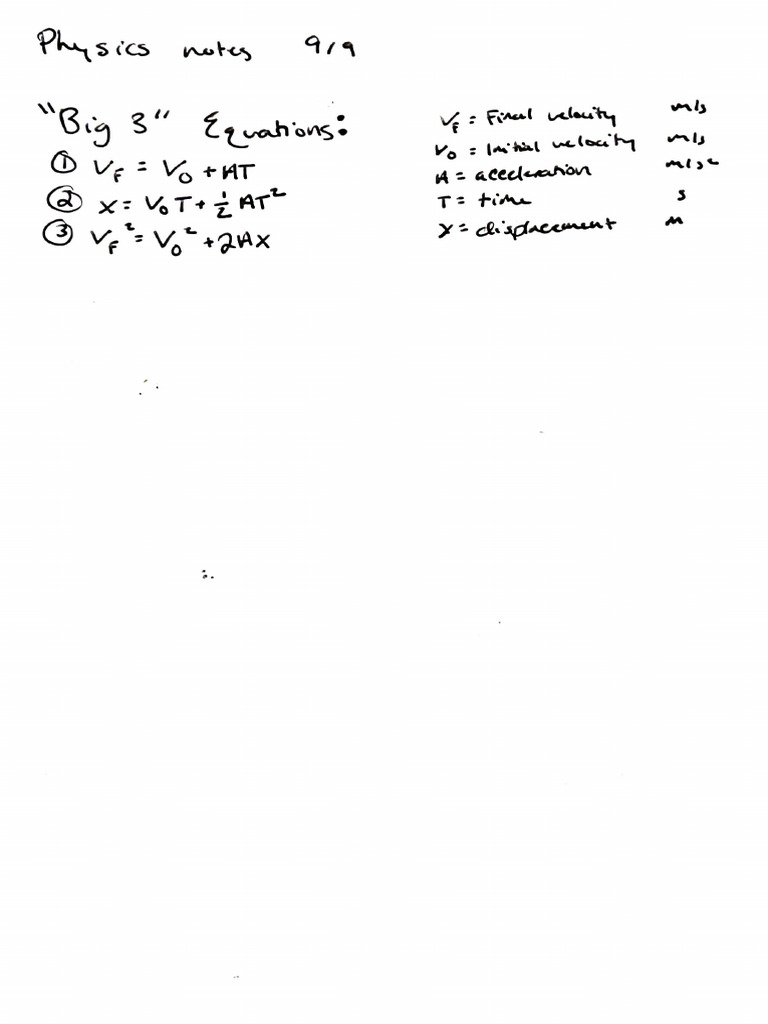 Physics notes 9/9
"Big 3" Equations:
① V_F = V_0 + AT
② X = V_0 T + 1/2 AT²
③ V_F² = V_0² + 2AX
V_F = Final velocity m/s
V_0 = Initial velocity m/s
A = acceleration m/s²
T = time s
X = displacement m